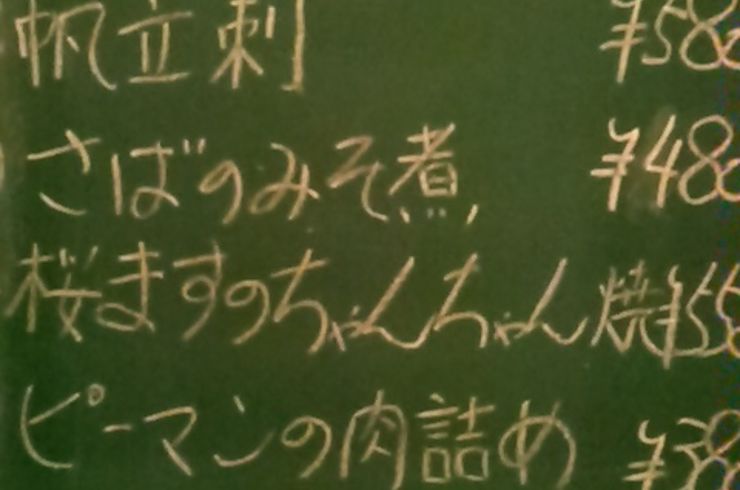 帆立刺 ¥580
さばのみそ煮 ¥480
桜ますのちゃんちゃん焼 ¥550
ピーマンの肉詰め ¥380